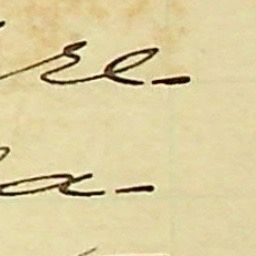 re-
a-